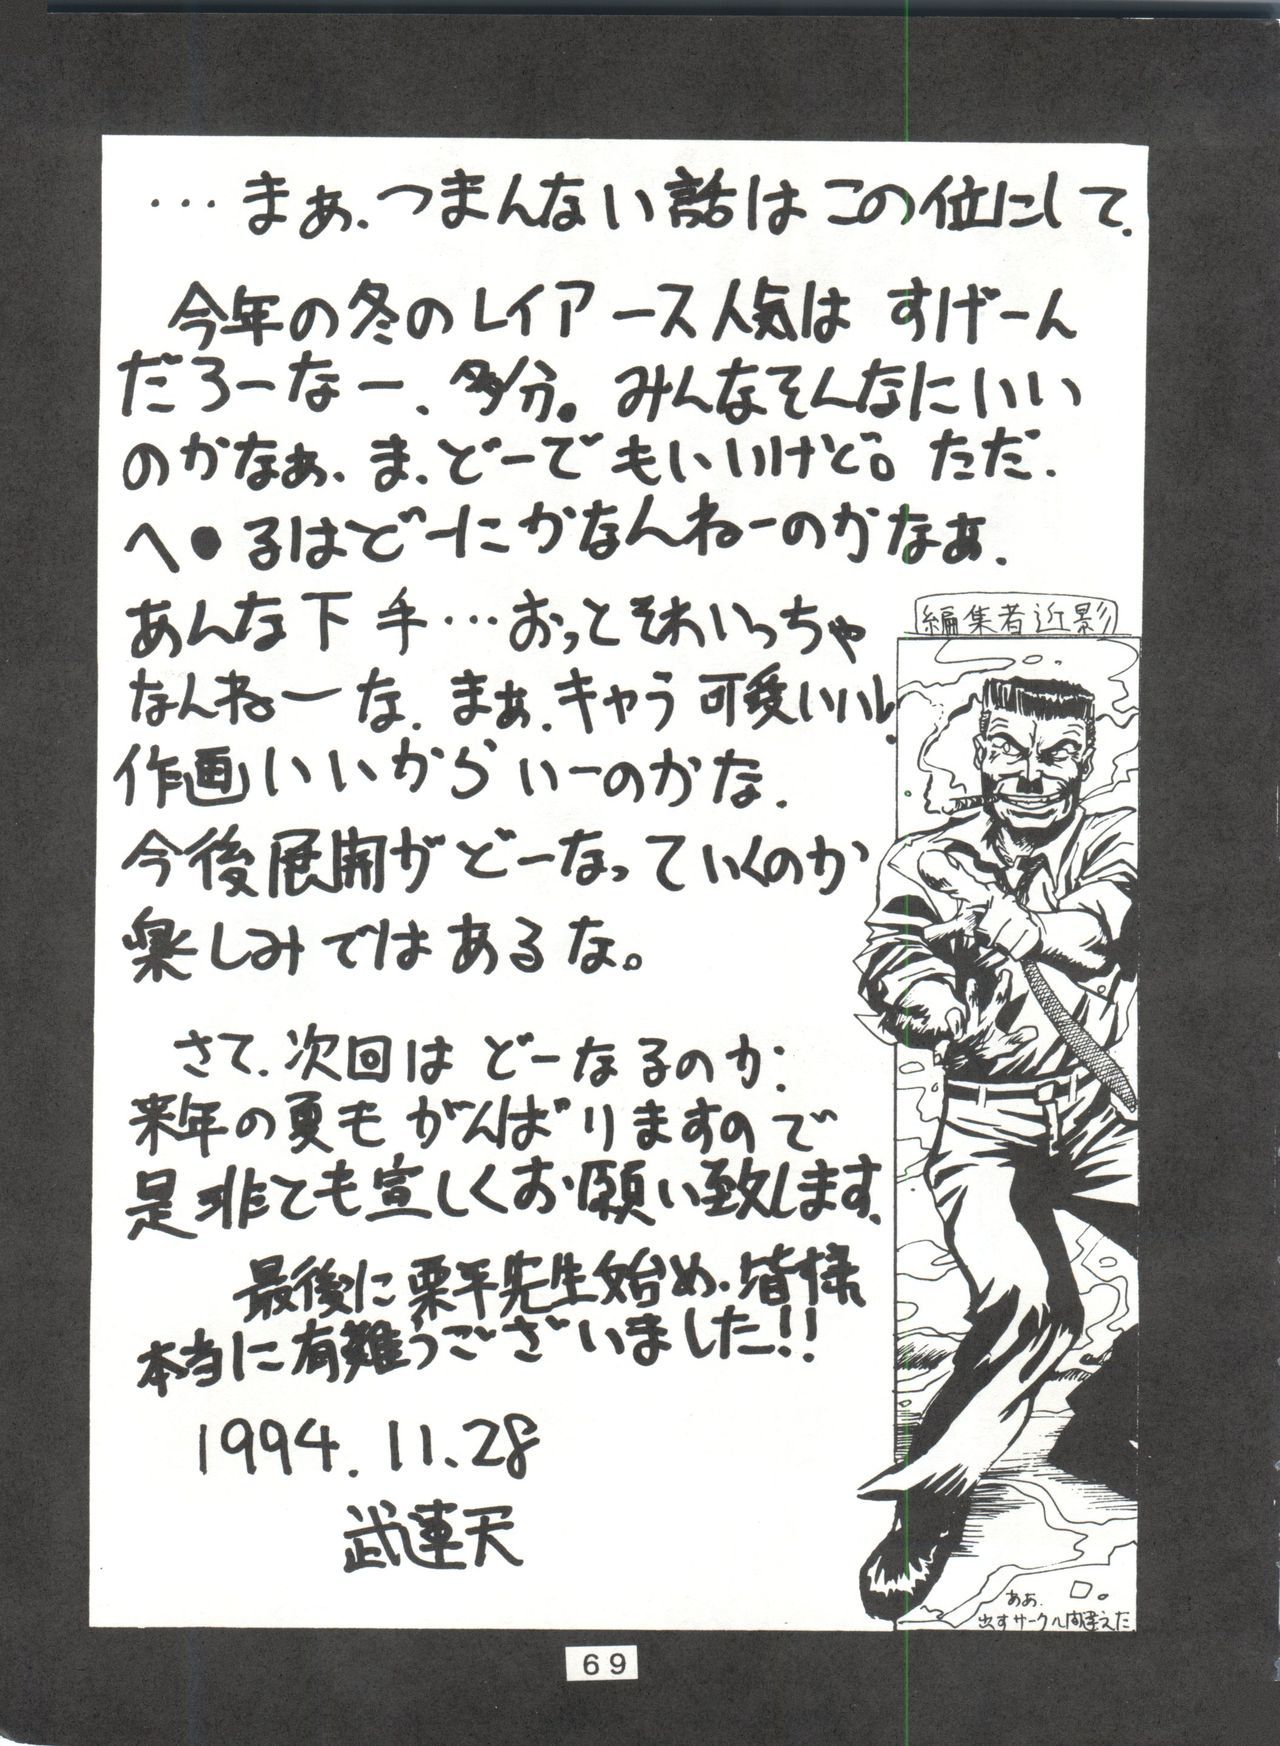 …まぁ、つまんない話はこの位にして、
今年の冬のレイアース人気は すげーん
だろーなー、多分。みんなそんなにいい
のかなぁ、ま、どーでもいいけど。ただ、
へ●るはどーにかなんねーのかなぁ、
あんな下手…おっとそれいっちゃ
なんねーな、まぁ、キャラ可愛いいし、
作画いいからいーのかな、
今後展開がどーなっていくのか
楽しみではあるな。
さて、次回は どーなるのか、
来年の夏も がんばりますので
是非とも宜しくお願い致します、
最後に栗平先生始め、皆様
本当に有難うございました!!
1994.11.28
武蓮天
編集者近影
ああ、
出すサークル間違えた
69